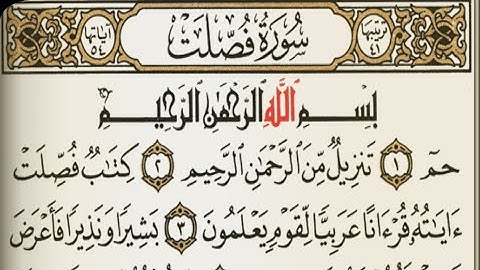 ترتيبها ٤١ سُورَةُ فُصِّلَت آياتها ٥٤
بِسْمِ ٱللَّهِ ٱلرَّحْمَٰنِ ٱلرَّحِيمِ
حمٓ ١ تَنزِيلٌ مِّنَ ٱلرَّحْمَٰنِ ٱلرَّحِيمِ ٢ كِتَٰبٌ فُصِّلَتْ
ءَايَٰتُهُۥ قُرْءَانًا عَرَبِيًّا لِّقَوْمٍ يَعْلَمُونَ ٣ بَشِيرًا وَنَذِيرًا فَأَعْرَضَ